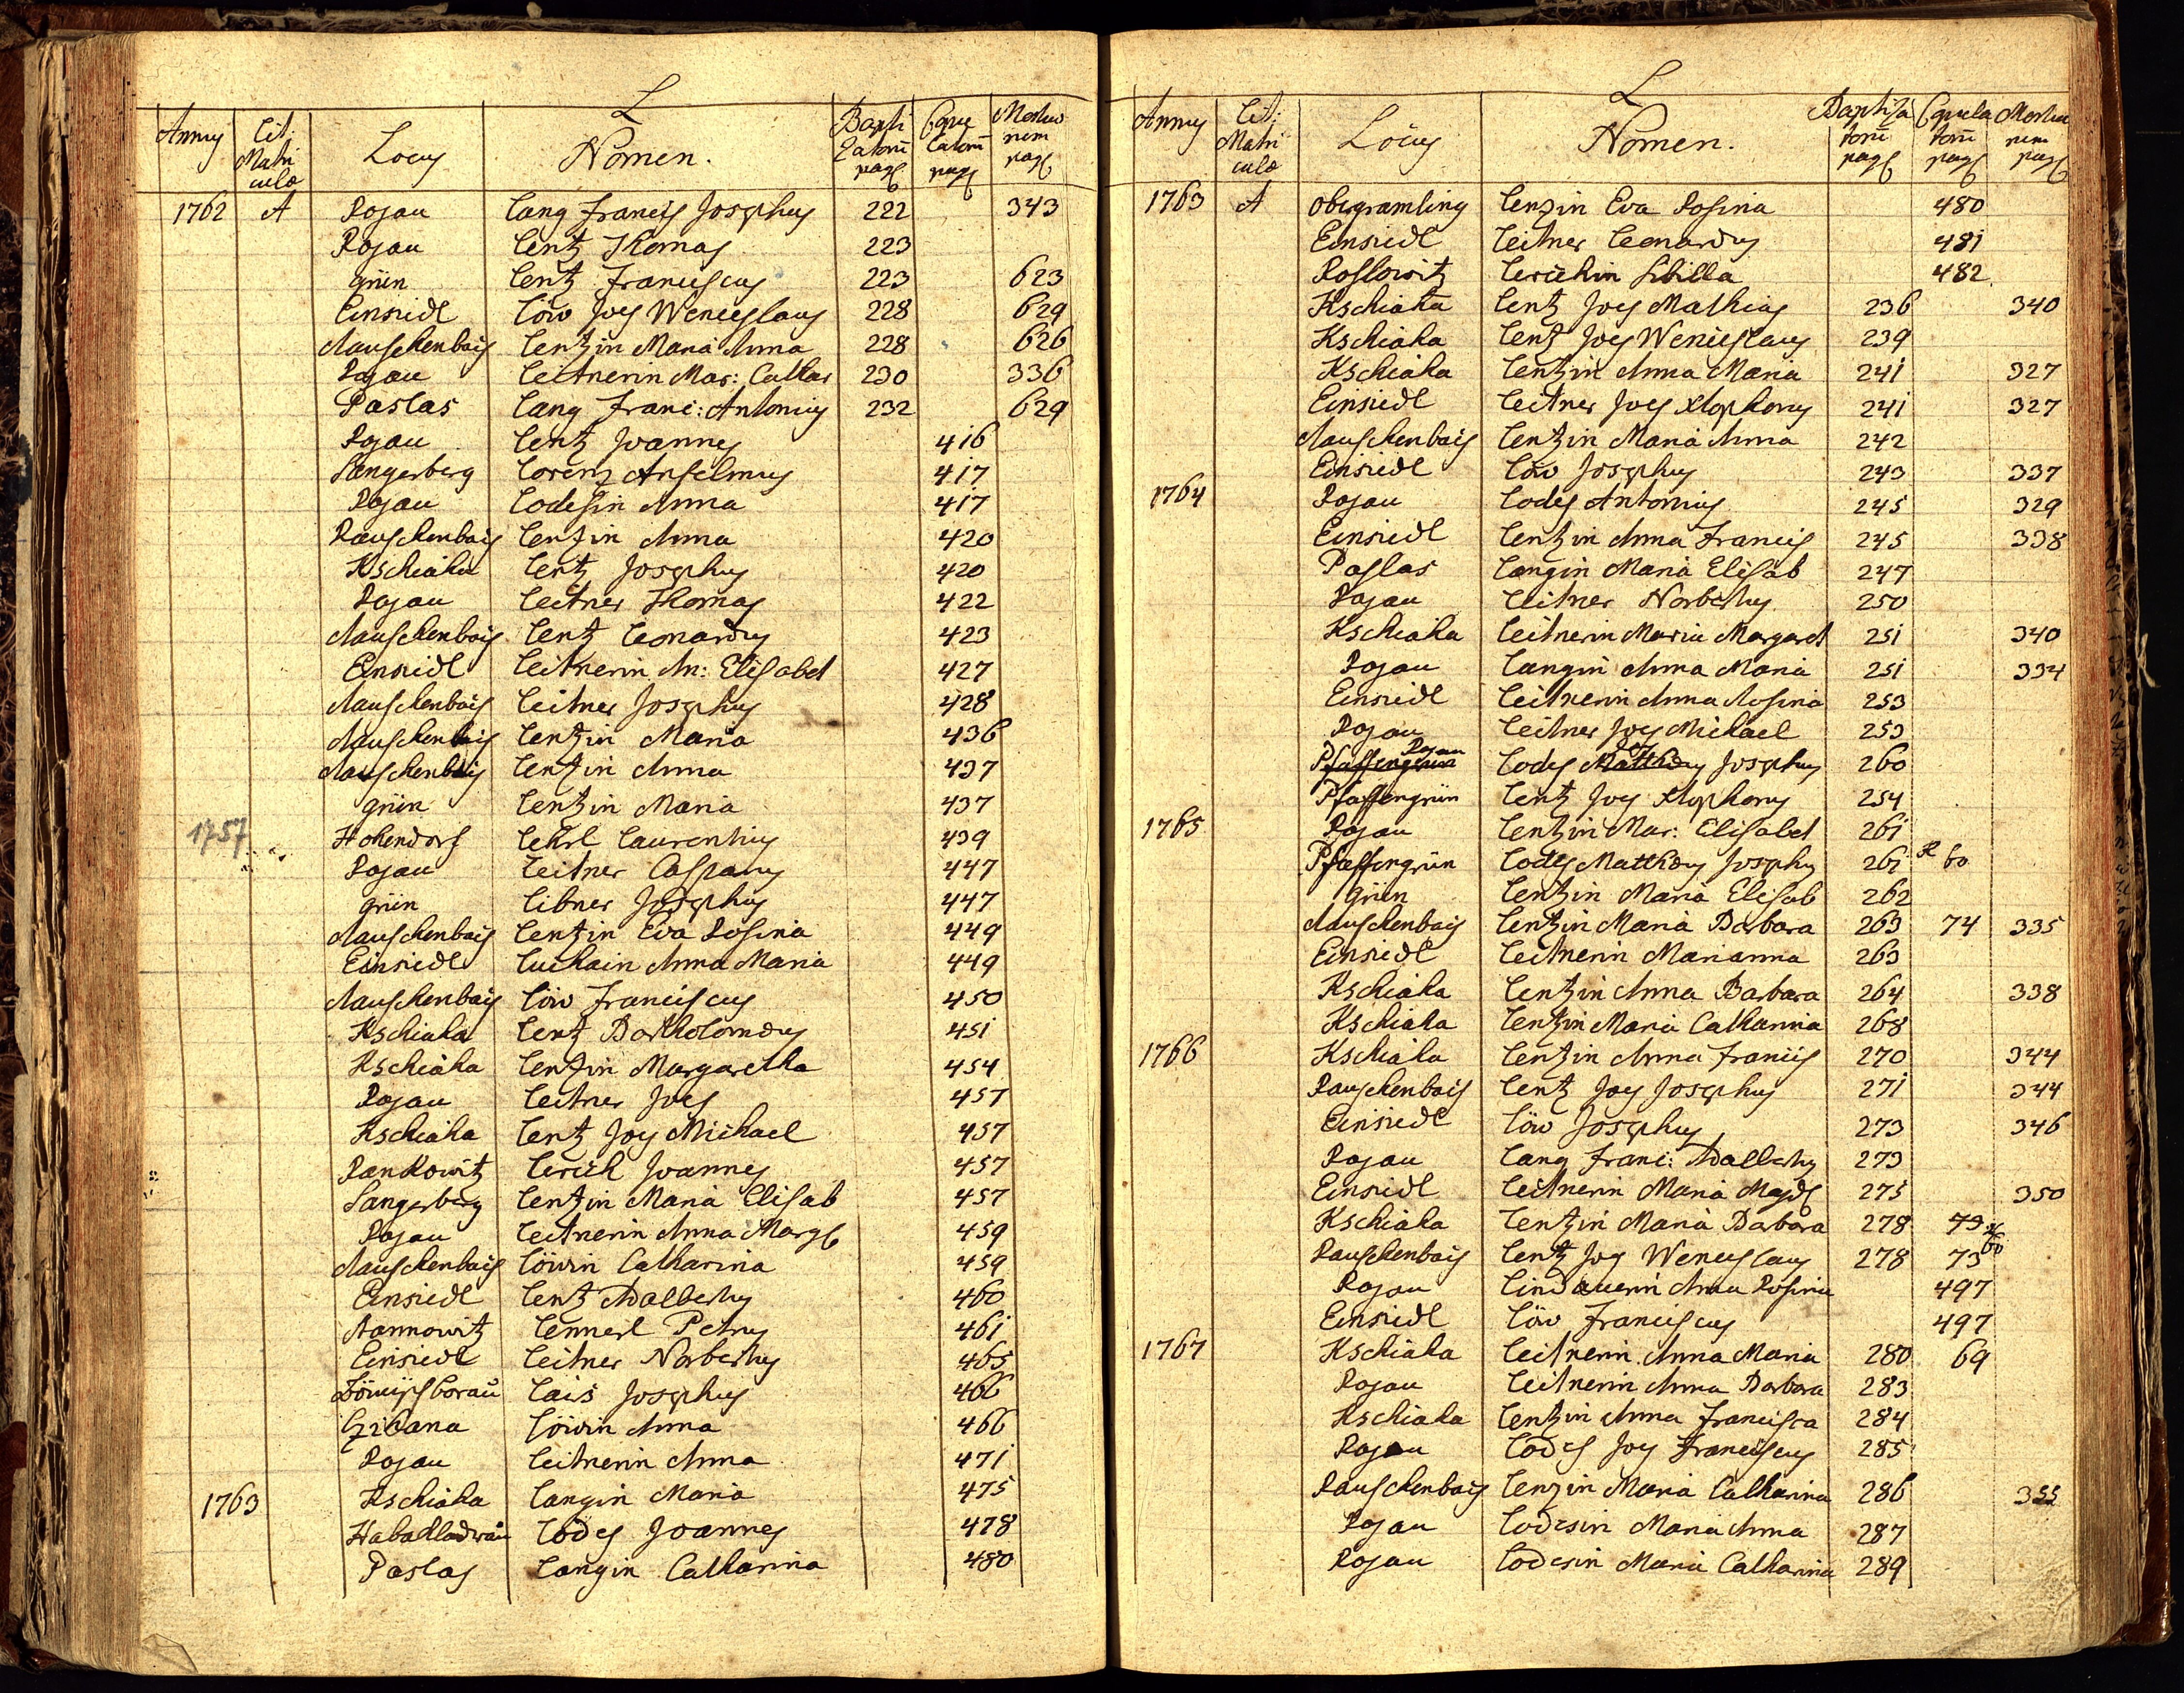 L
Annus Lit: Matri culae Locus Nomen. Bapti zatorū pag Copu latorū pag Mortuo rum pag
1762 A Rojau Lang Francis Josephus 222 343
Rojau Lentz Thomas 223
grün Lentz Franciscus 223 623
Einsiedl Löw Joes Wenceslaus 228 629
Rauschenbais Lentzin Maria Anna 228 626
Rojau Leitnerin Mar: Cathar 230 336
Paslas Lang Franc: Antonius 232 629
Rojau Lentz Joannes 416
Sangerberg Lorenz Anselmus 417
Rojau Lodesin Anna 417
Rauschenbais Lentzin Anna 420
Kschiaha Lentz Josephus 420
Rojau Leitner Thomas 422
Rauschenbais Lentz Leonardus 423
Einsiedl Leitnerin An: Elisabet 427
Rauschenbais Leitner Josephus 428
Rauschenbais Lentzin Maria 436
Rauschenbais Lentzin Anna 437
grün Lentzin Maria 437
1757 Hohendorf Lehrl Laurentius 439
Rojau Leitner Casparus 447
grün Libner Josephus 447
Rauschenbais Lentzin Eva Rosina 449
Einsiedl Luchain Anna Maria 449
Rauschenbais Löw Franciscus 450
Kschiaha Lentz Bartholomæus 451
Kschiaha Lentzin Margaretha 454
Rojau Leitner Joes 457
Kschiaha Lentz Joes Michael 457
Rankowitz Lerich Joannes 457
Sangerberg Lentzin Maria Elisab 457
Rojau Leitnerin Anna Marg 459
Rauschenbais Löwin Catharina 459
Einsiedl Lentz Adalbertus 460
Nannowitz Lennerl Petrus 461
Einsiedl Leitner Norbertus 465
Lais Josephus 466
Löwin Anna 466
Rojau Leitnerin Anna 471
1763 Kschiaha Langin Maria 475
Habakladrau Lodes Joannes 478
Paslas Langin Catharina 480
L
Annus Lit: Matri culae Locus Nomen. Baptiza torū pag Copula torū pag Mortuo rum pag
1763 A Obergramling Lenzin Eva Rosina 480
Einsiedl Leitner Leonardus 481
Roslowitz Lerichin Sibilla 482
Kschiaha Lentz Joes Mathias 236 340
Kschiaha Lentz Joes Wenceslaus 239
Kschiaha Lentzin Anna Maria 241 327
Einsiedl Leitner Joes Xtophorus 241 327
Rauschenbais Lentzin Maria Anna 242
Einsiedl Löw Josephus 243 337
1764 Rojau Lodes Antonius 245 329
Einsiedl Lentzin Anna Francis 245 338
Paslas Langin Maria Elisab 247
Rojau Leitner Norbertus 250
Kschiaha Leitnerin Maria Margaret 251 340
Rojau Langin Anna Maria 251 334
Einsiedl Leitnerin Anna Rosina 253
Rojau Leitner Joes Michael 253
Pfaffengrün Rojau Lodes Matthæus Josephus 260
Pfaffengrün Lentz Joes Xtophorus 254
1765 Rojau Lentzin Mar: Elisabet 261
Pfaffengrün Lodes Matthæus Josephus 261 R 60
grün Lentzin Maria Elisab 262
Rauschenbais Lentzin Maria Barbara 263 74 335
Einsiedl Leitnerin Marianna 263
Kschiaha Lentzin Anna Barbara 264 338
Kschiaha Lentzin Maria Catharina 268
1766 Kschiaha Lentzin Anna Francis 270 344
Rauschenbais Lentz Joes Josephus 271 344
Einsiedl Löw Josephus 273 346
Rojau Lang Franc: Adalbertus 273
Einsiedl Leitnerin Maria Magd 275 350
Kschiaha Lentzin Maria Barbara 278 73
Rauschenbais Lentz Joes Wenceslaus 278 73 60
Rojau Lindauerin Anna Rosina 497
Einsiedl Löw Franciscus 497
1767 Kschiaha Leitnerin Anna Maria 280 69
Rojau Leitnerin Anna Barbara 283
Kschiaha Lentzin Anna Francisca 284
Rojau Lodes Joes Franciscus 285
Rauschenbais Lenzin Maria Catharina 286 355
Rojau Lodesin Maria Anna 287
Rojau Lodesin Maria Catharina 289